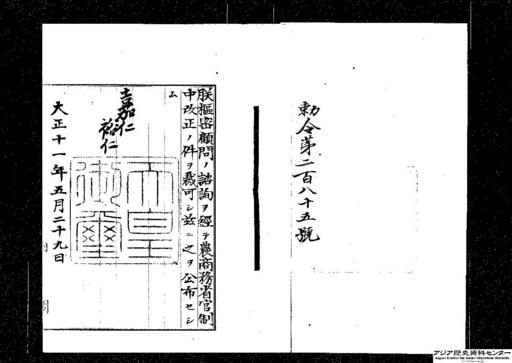 勅令第二百八十五號
朕樞密顧問ノ諮詢ヲ經テ農商務省官制
中改正ノ件ヲ裁可シ茲ニ之ヲ公布セシ
ム
嘉仁
裕仁
天皇
御璽
大正十一年五月二十九日
アジア歴史資料センター
Japan Center for Asian Historical Records